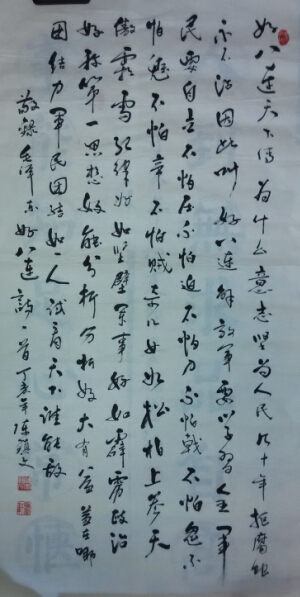 好八连天下传为什么意志坚为人民几十年拒腐蚀
永不沾因此叫好八连解放军要学习全军
民要自立不怕压不怕迫不怕刀不怕戟不怕鬼不
怕魅不怕帝不怕贼奇儿女如松柏上参天
傲霜雪纪律好如坚壁军事好如霹雳政治
好称第一思想好能分析分析好大有益益在哪
团结力军民团结如一人试看天下谁能敌
敬录毛泽东好八连诗一首丁亥年陈